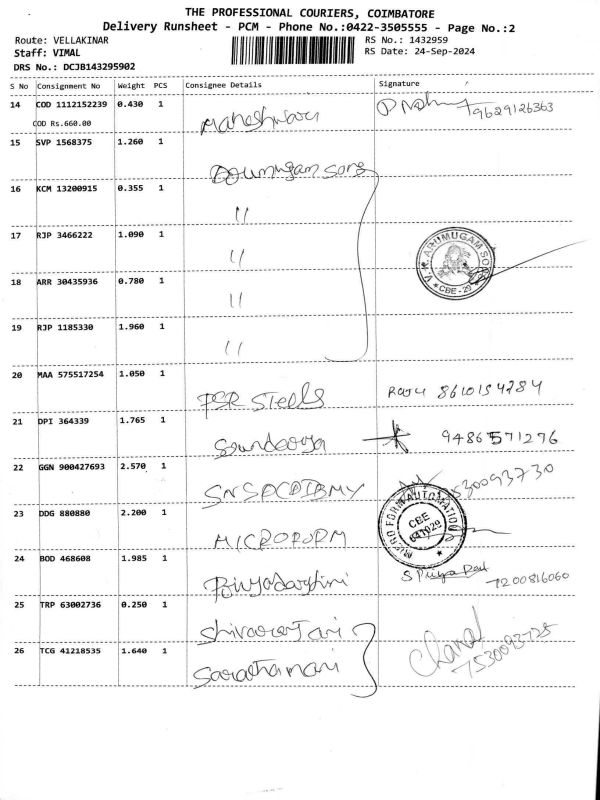 THE PROFESSIONAL COURIERS, COIMBATORE
Delivery Runsheet - PCM - Phone No.:0422-3505555 - Page No.:2
Route: VELLAKINAR RS No.: 1432959
Staff: VIMAL RS Date: 24-Sep-2024
DRS No.: DCJB143295902
S No Consignment No Weight PCS Consignee Details Signature
14 COD 1112152239 0.430 1 9629126363
COD Rs.660.00
15 SVP 1568375 1.260 1
16 KCM 13200915 0.355 1 "
17 RJP 3466222 1.090 1 "
V.K. ARUMUGAM SONS
* CBE-29 *
18 ARR 30435936 0.780 1 "
19 RJP 1185330 1.960 1 "
20 MAA 575517254 1.050 1 PSR Steels 8610154784
21 DPI 364339 1.765 1 9486571276
22 GGN 900427693 2.570 1
MICRO FORM AUTOMATION
CBE
641029
23 DDG 880880 2.200 1
24 BOD 468608 1.985 1 7200816060
25 TRP 63002736 0.250 1
26 TCG 41218535 1.640 1 7530093725